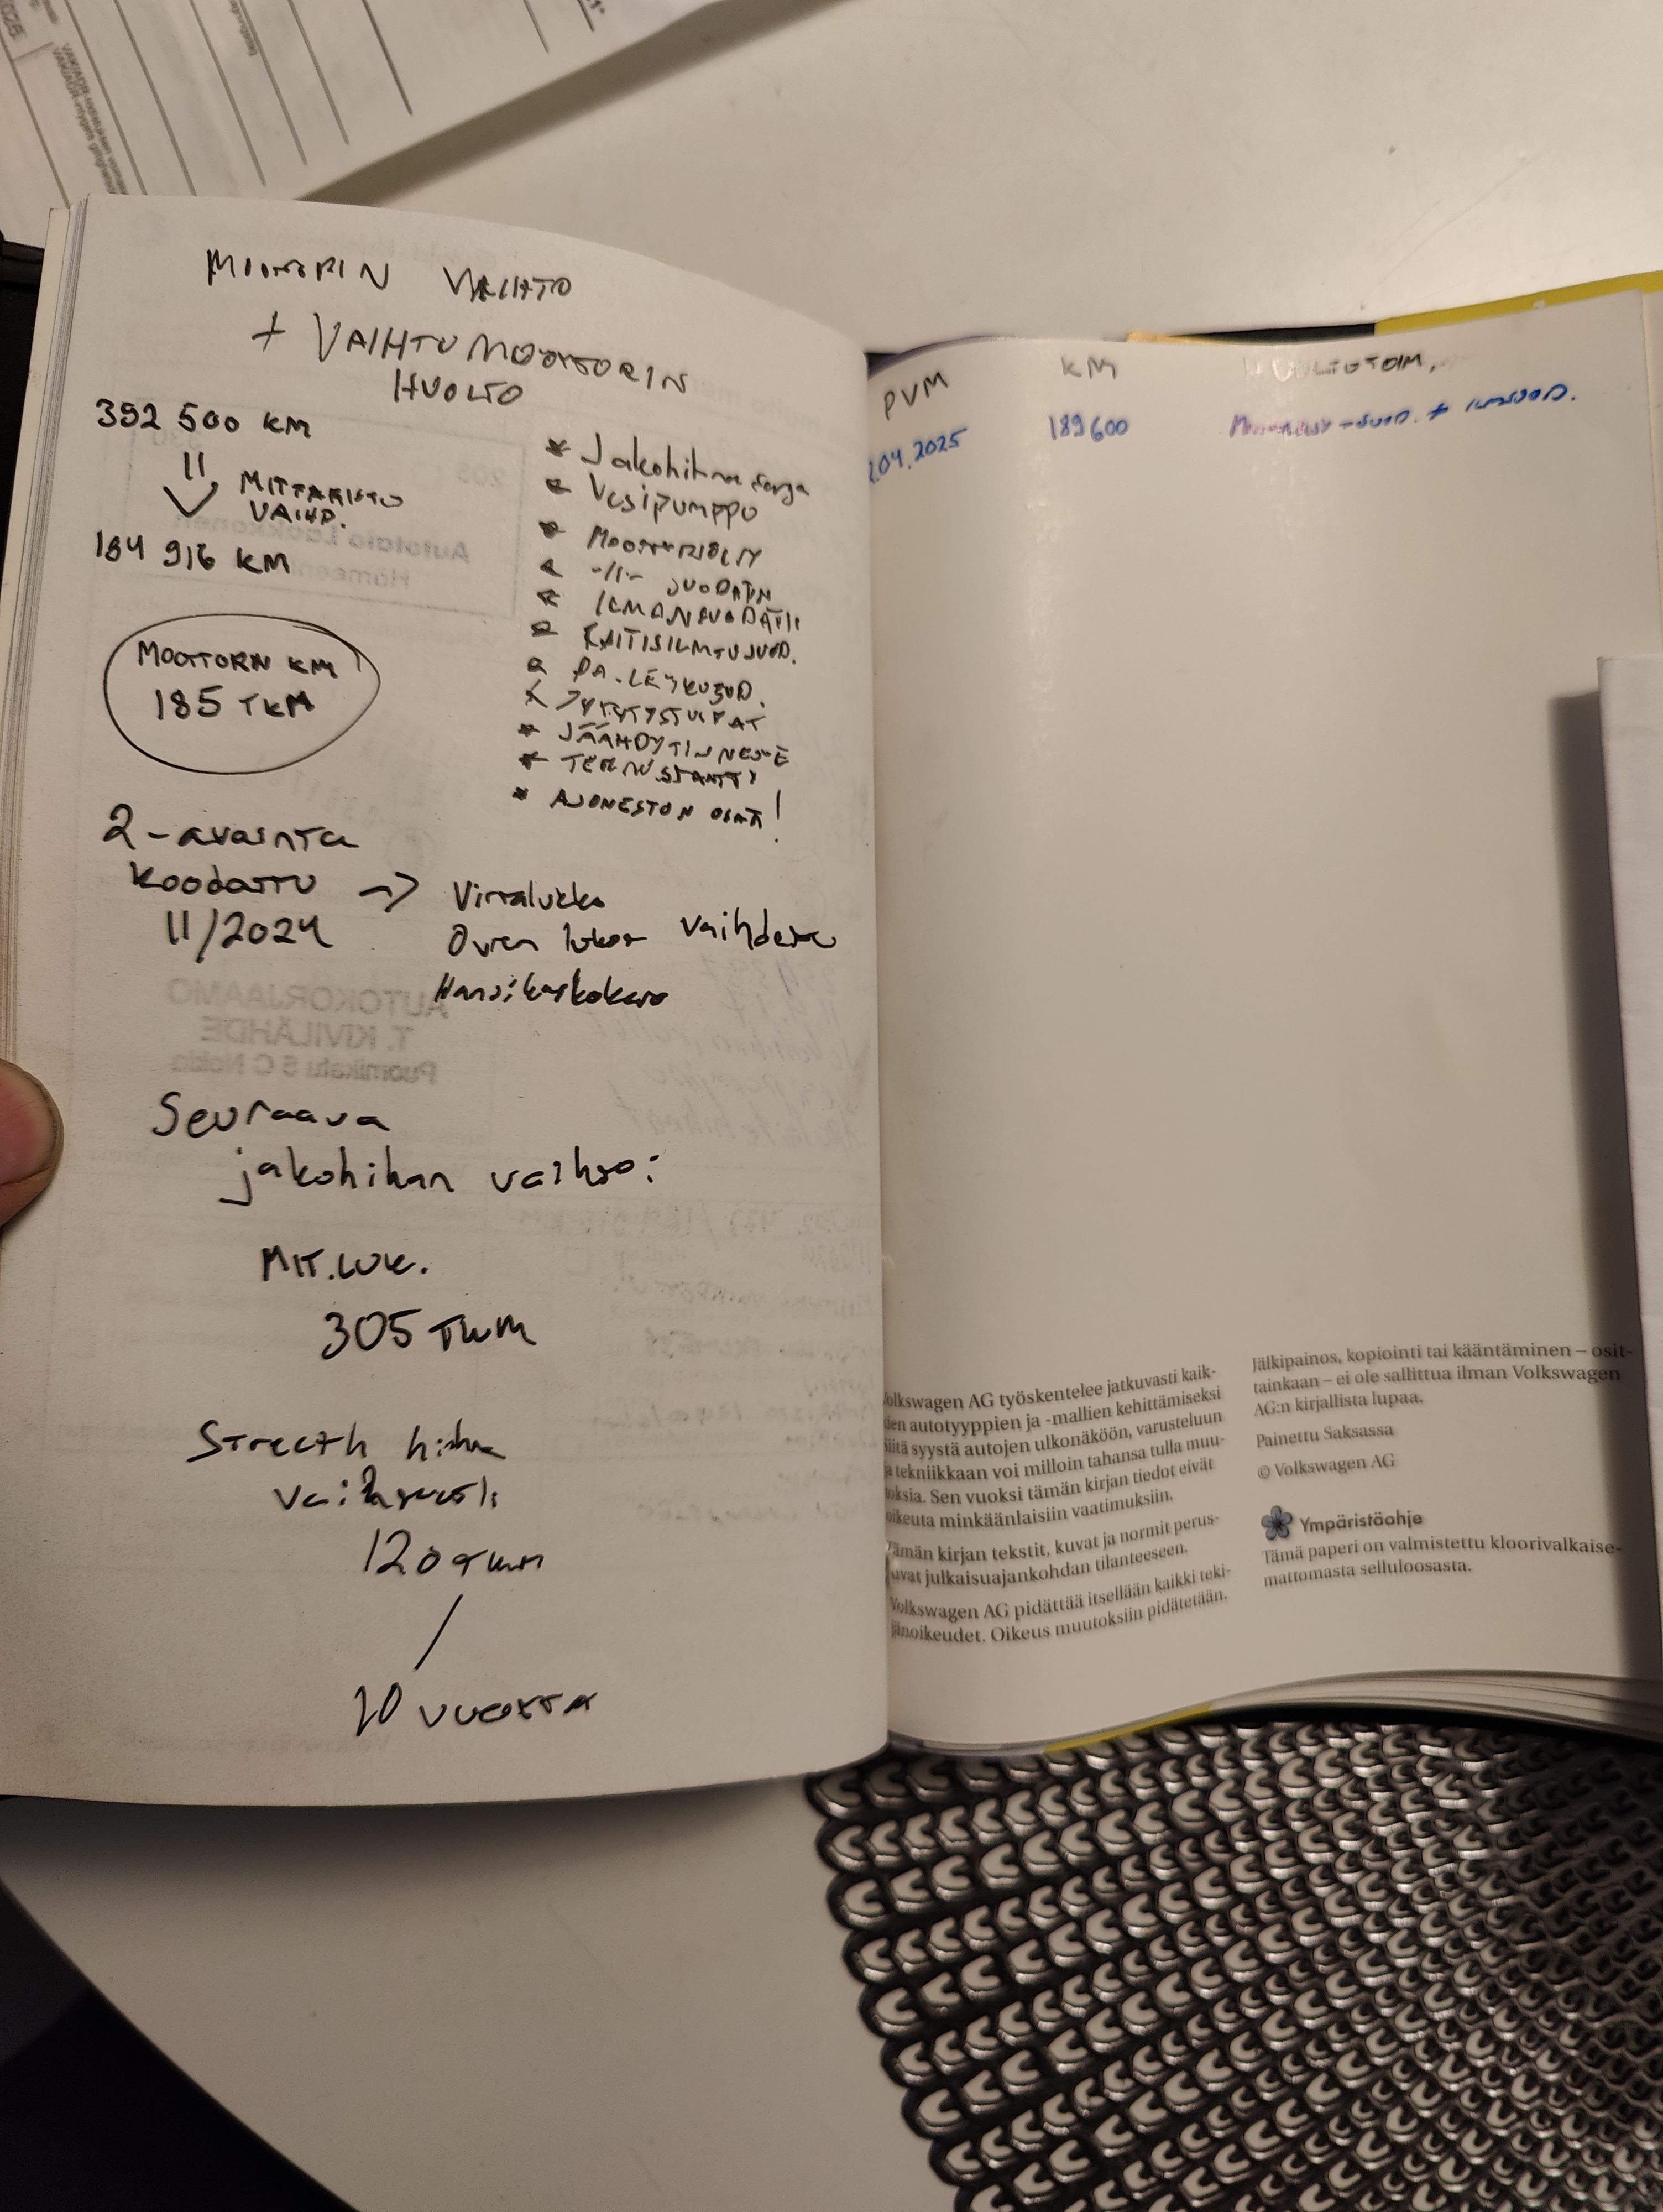 MOOTTORIN VAIHTO
+ VAIHTOMOOTTORIN
HUOLTO
392 500 KM
MITTARISTO
VAIHD.
184 916 KM
MOOTTORIN KM
185 TKM
* Jakohihna sarja
* Vesipumppu
* MOOTTORIÖLJY
* -11- SUODATIN
* ILMANSUODATIN
* RAITISILMASUOD.
* PA. LEYKUSUD.
* SYTYTYSTULPAT
* JÄÄHDYTINNESTE
* TERMOSTAATTI
* AJONESTON OSAT!
2-avainta
koodattu ->
11/2024
Virralukko
Oven lukot vaihdettu
Hansikaskotelo
Seuraava
jakohihnan vaihto:
MIT.LUK.
305 TKM
Strecth hihna
vaihtoväli
120 TKM
/
10 VUOTTA
PVM KM HUOLTOTOIM.
.04.2025 189600 Moottoriöljy -suod. + ilmsuod.
Volkswagen AG työskentelee jatkuvasti kaik-
den autotyyppien ja -mallien kehittämiseksi
Siitä syystä autojen ulkonäköön, varusteluun
ja tekniikkaan voi milloin tahansa tulla muu-
toksia. Sen vuoksi tämän kirjan tiedot eivät
oikeuta minkäänlaisiin vaatimuksiin.
Tämän kirjan tekstit, kuvat ja normit perus-
tuvat julkaisuajankohdan tilanteeseen.
Volkswagen AG pidättää itsellään kaikki teki-
jänoikeudet. Oikeus muutoksiin pidätetään.
Jälkipainos, kopiointi tai kääntäminen – osit-
tainkaan – ei ole sallittua ilman Volkswagen
AG:n kirjallista lupaa.
Painettu Saksassa
© Volkswagen AG
Ympäristöohje
Tämä paperi on valmistettu kloorivalkaise-
mattomasta selluloosasta.